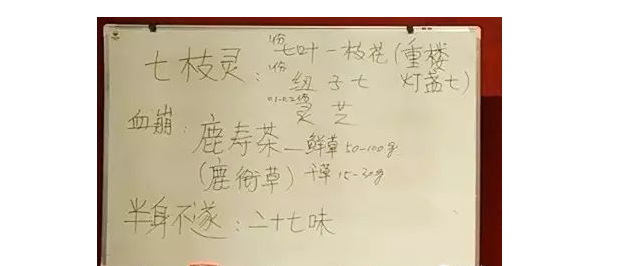 七枝灵：1份 七叶一枝花（重楼
1份 纽子七 灯盏七）
0.1-0.2份 灵芝
血崩：鹿寿茶—鲜草 50-100g
（鹿衔草）干草 15-30g
半身不遂：二十七味